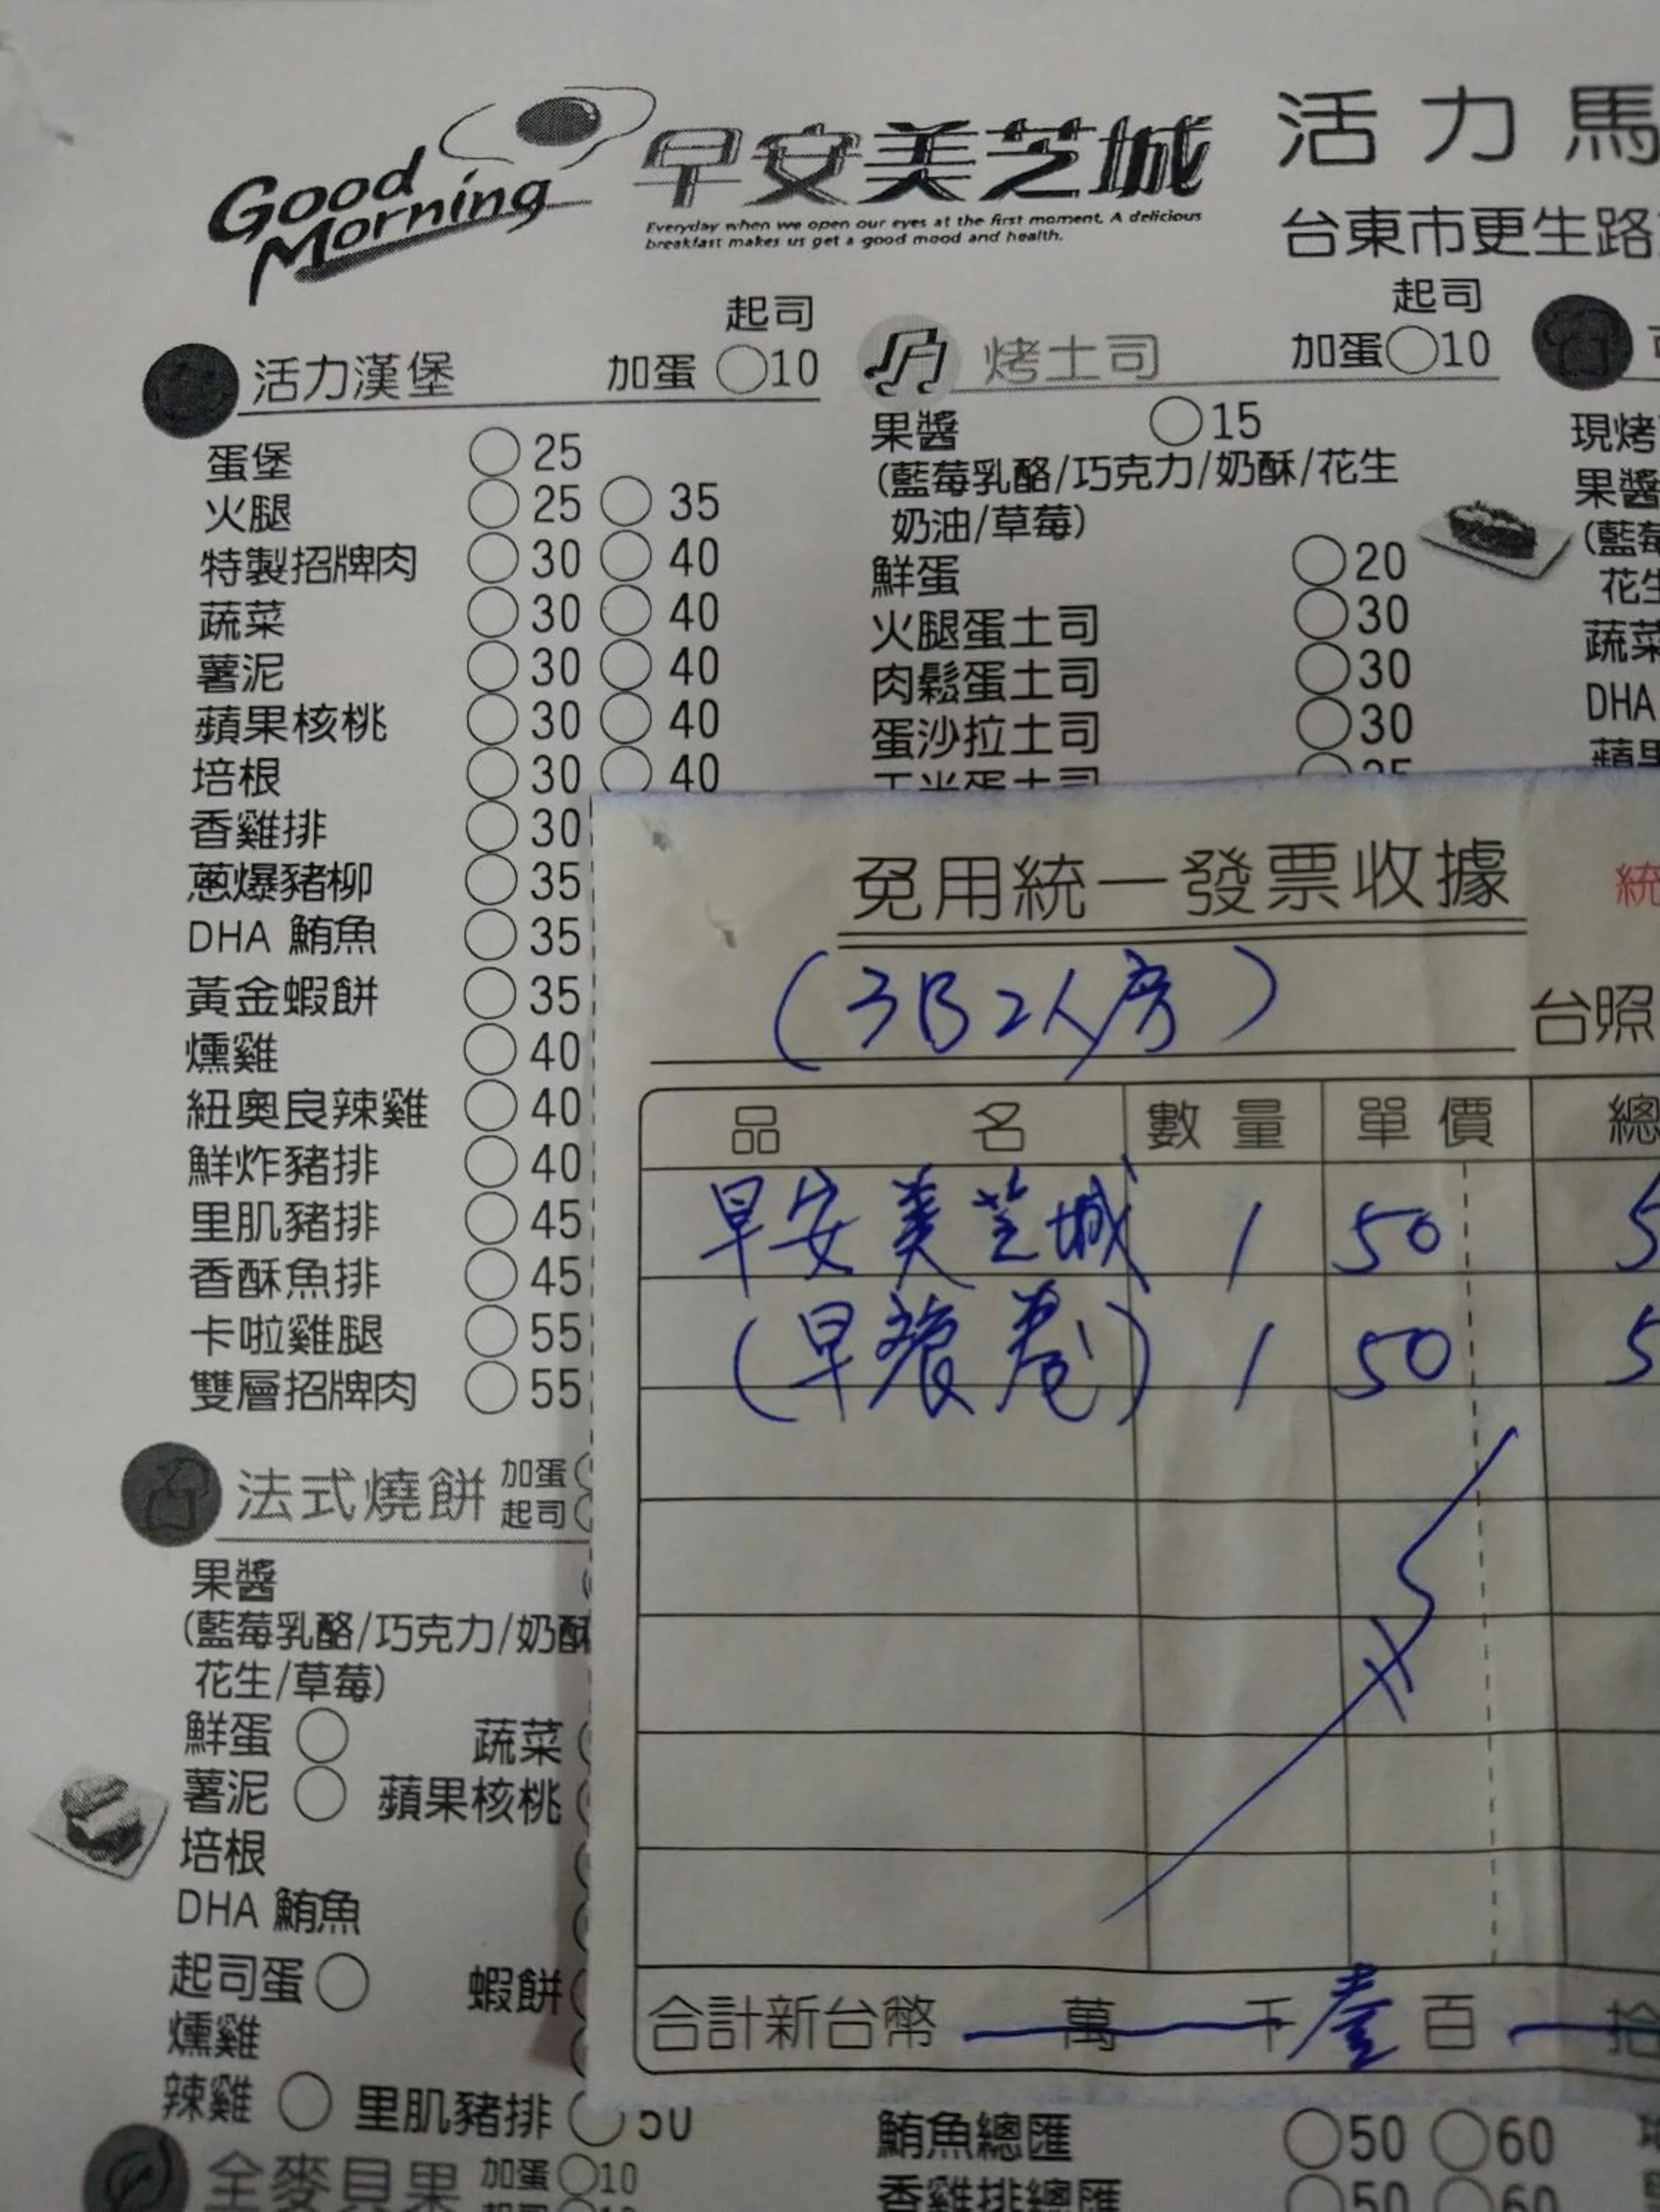 Good Morning
早安美芝城
Everyday when we open our eyes at the first moment, A delicious
breakfast makes us get a good mood and health.
活力馬
台東市更生路
活力漢堡 加蛋 起司 10
蛋堡 25
火腿 25 35
特製招牌肉 30 40
蔬菜 30 40
薯泥 30 40
蘋果核桃 30 40
培根 30 40
香雞排 30
蔥爆豬柳 35
DHA 鮪魚 35
黃金蝦餅 35
燻雞 40
紐奧良辣雞 40
鮮炸豬排 40
里肌豬排 45
香酥魚排 45
卡啦雞腿 55
雙層招牌肉 55
法式燒餅 加蛋 起司
果醬
(藍莓乳酪/巧克力/奶酥
花生/草莓)
鮮蛋 蔬菜
薯泥 蘋果核桃
培根
DHA 鮪魚
起司蛋 蝦餅
燻雞
辣雞 里肌豬排 50
全麥貝果 加蛋 10
烤土司 加蛋 起司 10
果醬 15
(藍莓乳酪/巧克力/奶酥/花生
奶油/草莓)
鮮蛋 20
火腿蛋土司 30
肉鬆蛋土司 30
蛋沙拉土司 30
現烤
果醬
(藍莓
花生
蔬菜
DHA
免用統一發票收據
統
(3B2人房)
台照
品名 數量 單價 總
早安美芝城 1 50 5
(早餐卷) 1 50 5
合計新台幣 萬 千 壹 百 拾
鮪魚總匯 50 60
香雞排總匯 50 60